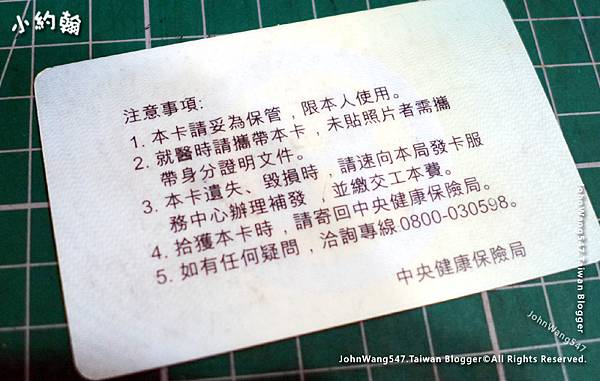 小約翰
注意事項:
1. 本卡請妥為保管，限本人使用。
2. 就醫時請攜帶本卡，未貼照片者需攜
帶身分證明文件。
3. 本卡遺失、毀損時，請速向本局發卡服
務中心辦理補發，並繳交工本費。
4. 拾獲本卡時，請寄回中央健康保險局。
5. 如有任何疑問，洽詢專線:0800-030598。
中央健康保險局
JohnWang547.Taiwan Blogger
JohnWang547
JohnWang547.Taiwan Blogger©All Rights Reserved.